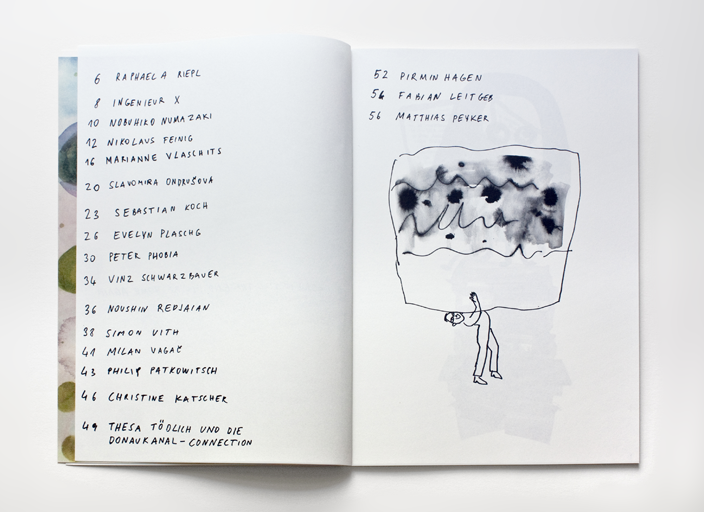 6 RAPHAELA RIEPL
8 INGENIEUR X
10 NOBUHIKO NUMAZAKI
12 NIKOLAUS FEINIG
16 MARIANNE VLASCHITS
20 SLAVOMIRA ONDRUŠOVA
23 SEBASTIAN KOCH
26 EVELYN PLASCHG
30 PETER PHOBIA
34 VINZ SCHWARZBAUER
36 NOUSHIN REDJAIAN
38 SIMON VITH
41 MILAN VAGAČ
43 PHILIP PATKOWITSCH
46 CHRISTINE KATSCHER
49 THESA TÖDLICH UND DIE
DONAUKANAL-CONNECTION
52 PIRMIN HAGEN
54 FABIAN LEITGEB
56 MATTHIAS PEYKER